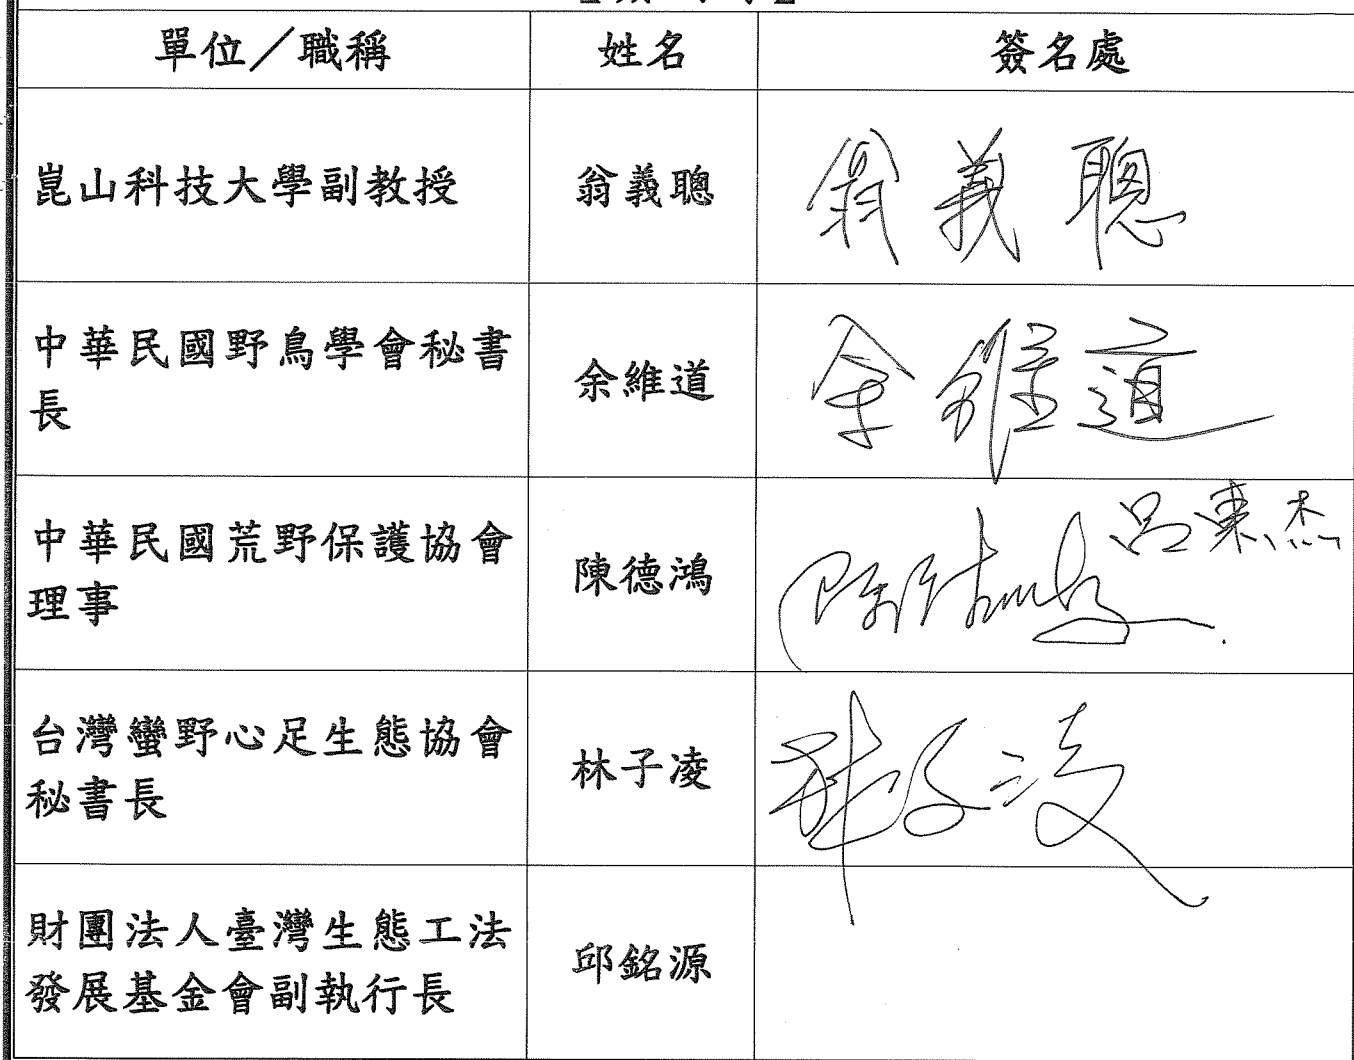 單位／職稱 姓名 簽名處
崑山科技大學副教授 翁義聰 翁義聰
中華民國野鳥學會秘書
長
余維道 余維道
中華民國荒野保護協會
理事
陳德鴻 陳德鴻 呂東杰
台灣蠻野心足生態協會
秘書長
林子凌 林子凌
財團法人臺灣生態工法
發展基金會副執行長
邱銘源